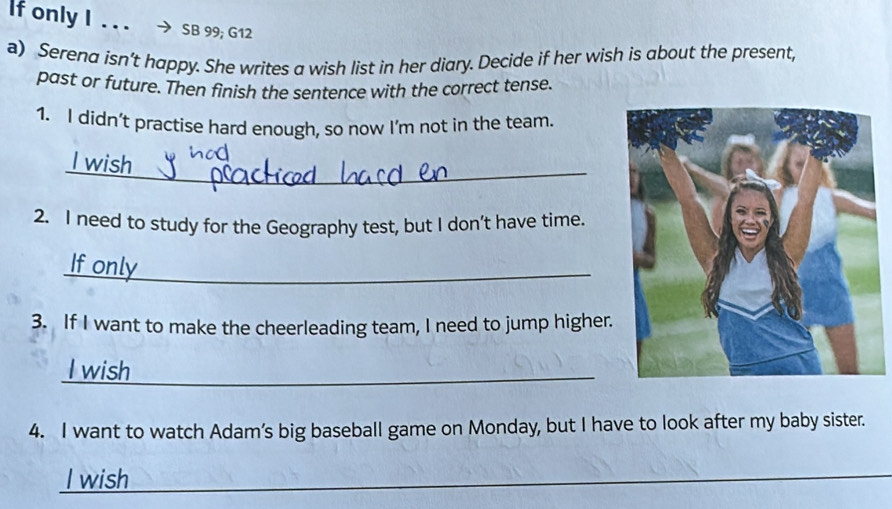 If only I ... → SB 99; G12
a) Serena isn't happy. She writes a wish list in her diary. Decide if her wish is about the present,
past or future. Then finish the sentence with the correct tense.
1. I didn't practise hard enough, so now I'm not in the team.
had
I wish y practiced hard en
2. I need to study for the Geography test, but I don't have time.
If only
3. If I want to make the cheerleading team, I need to jump higher.
I wish
4. I want to watch Adam's big baseball game on Monday, but I have to look after my baby sister.
I wish